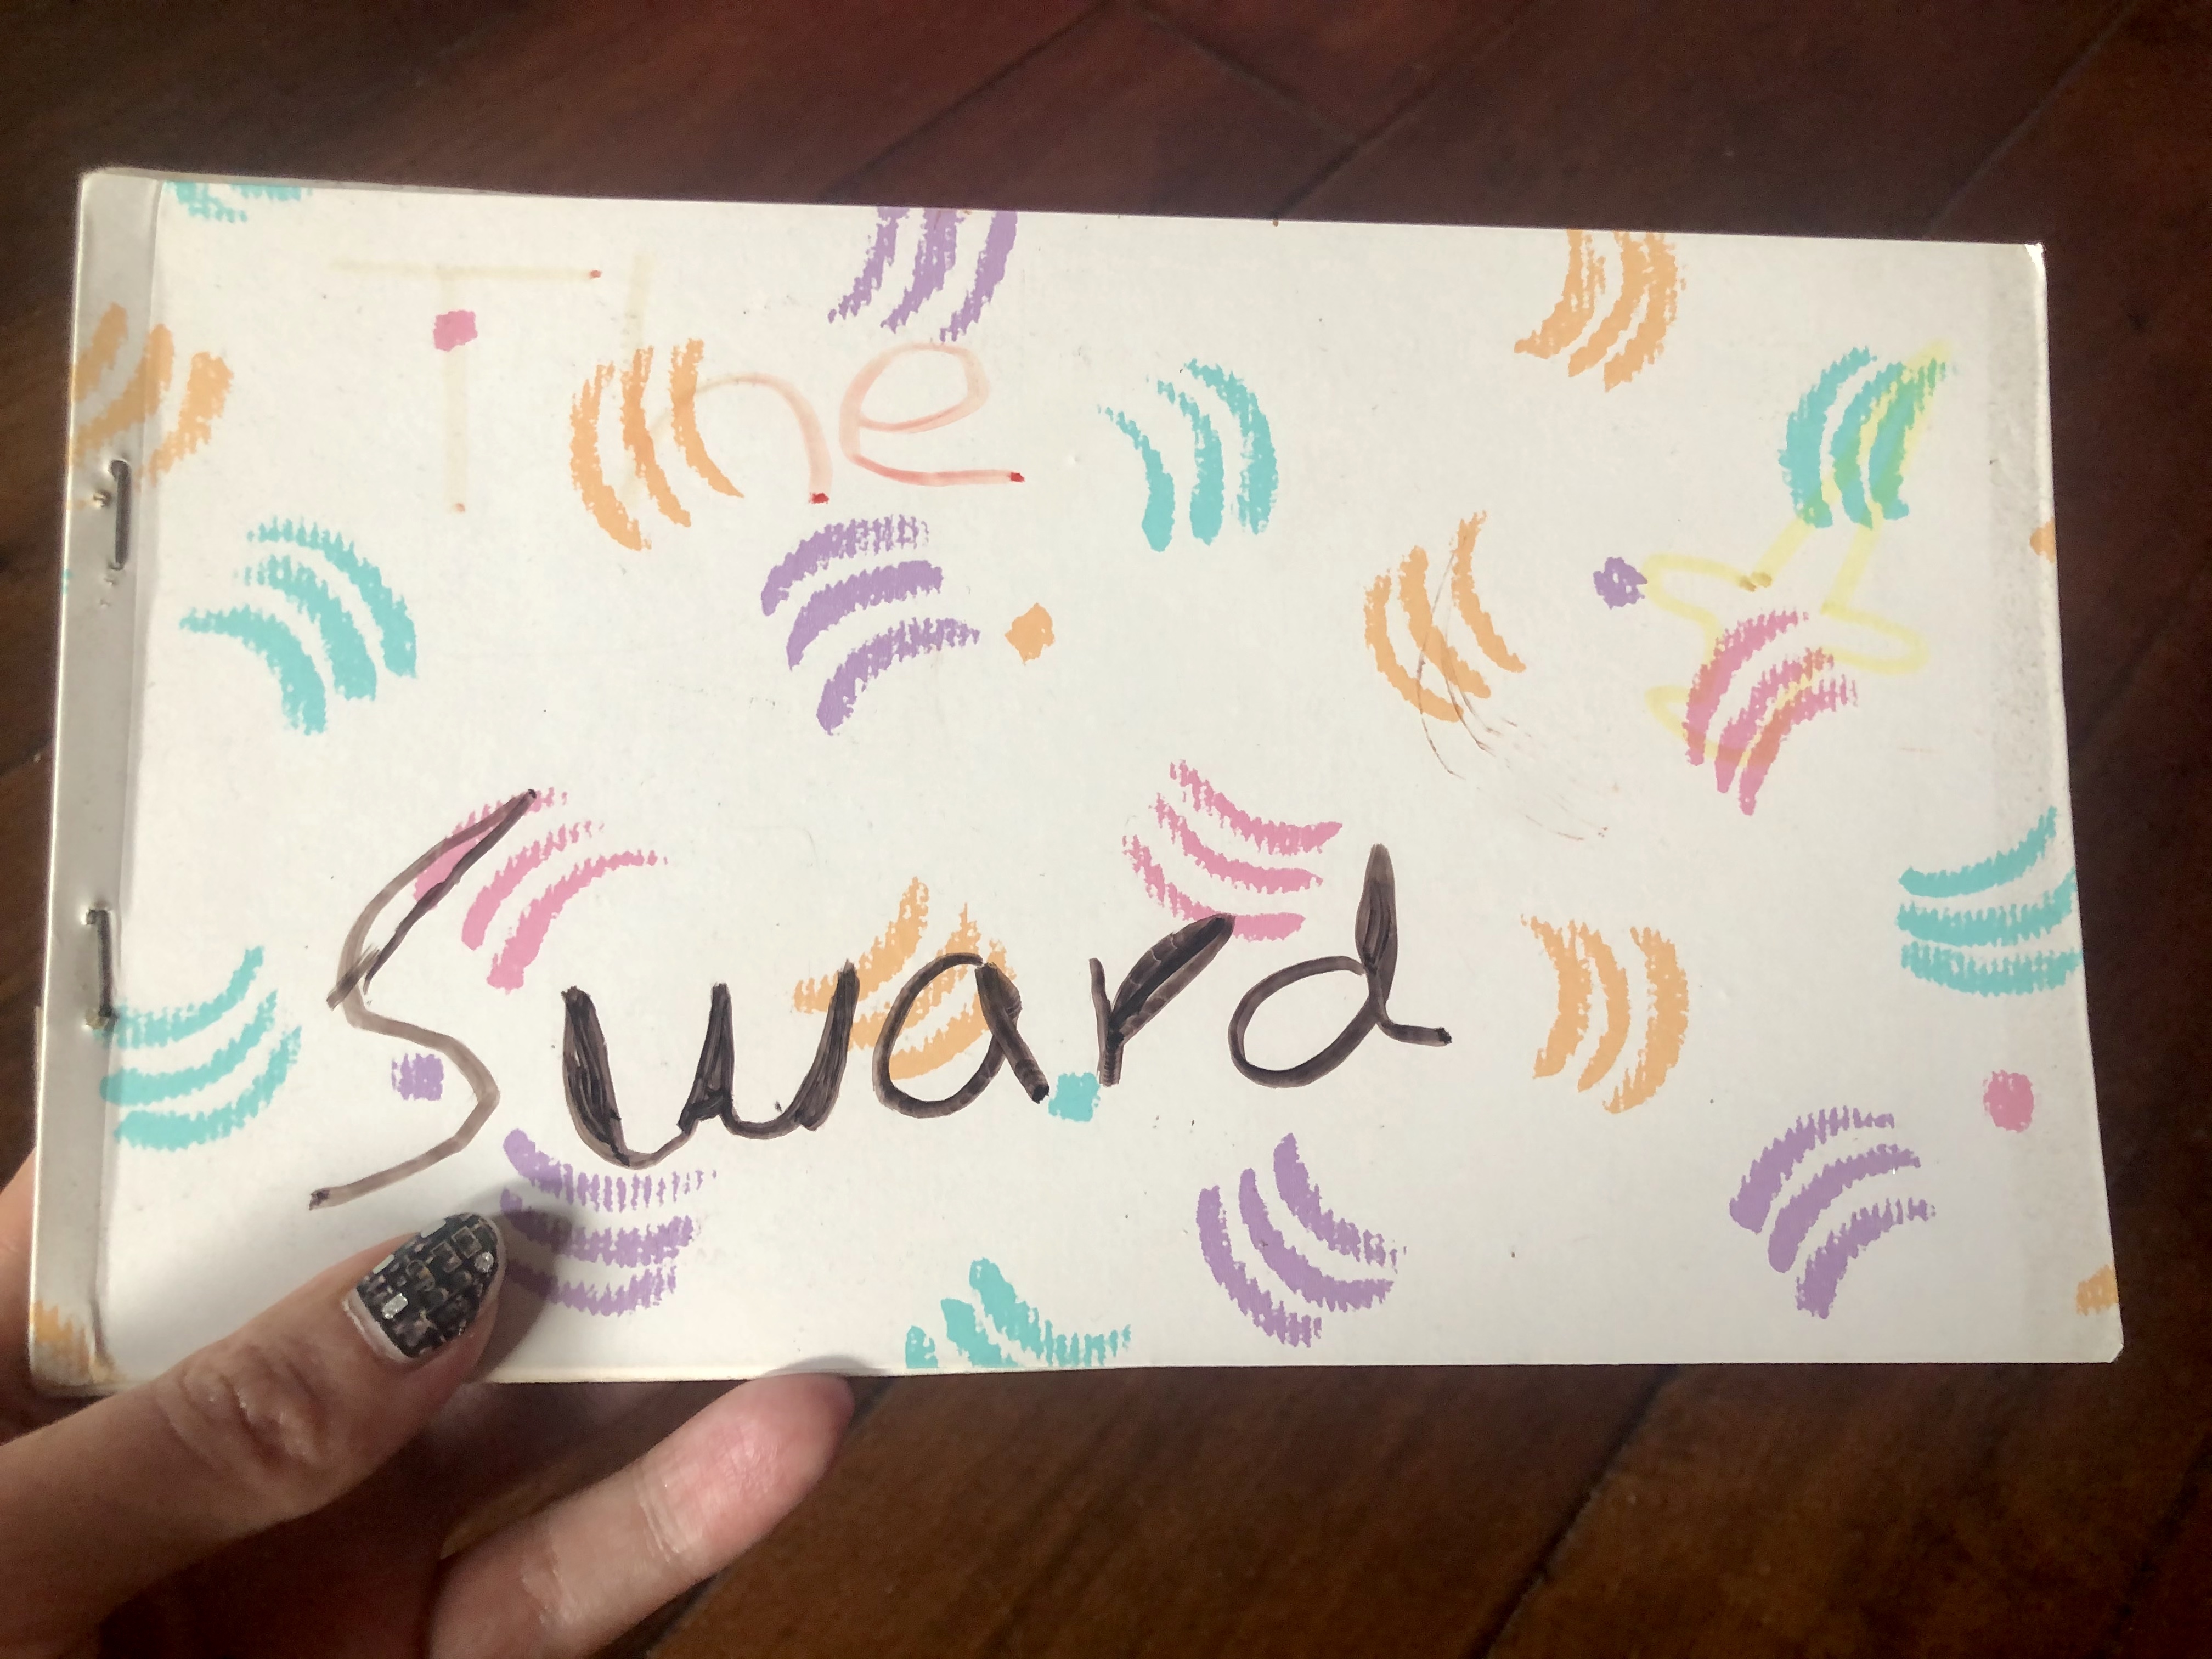 The
Sward